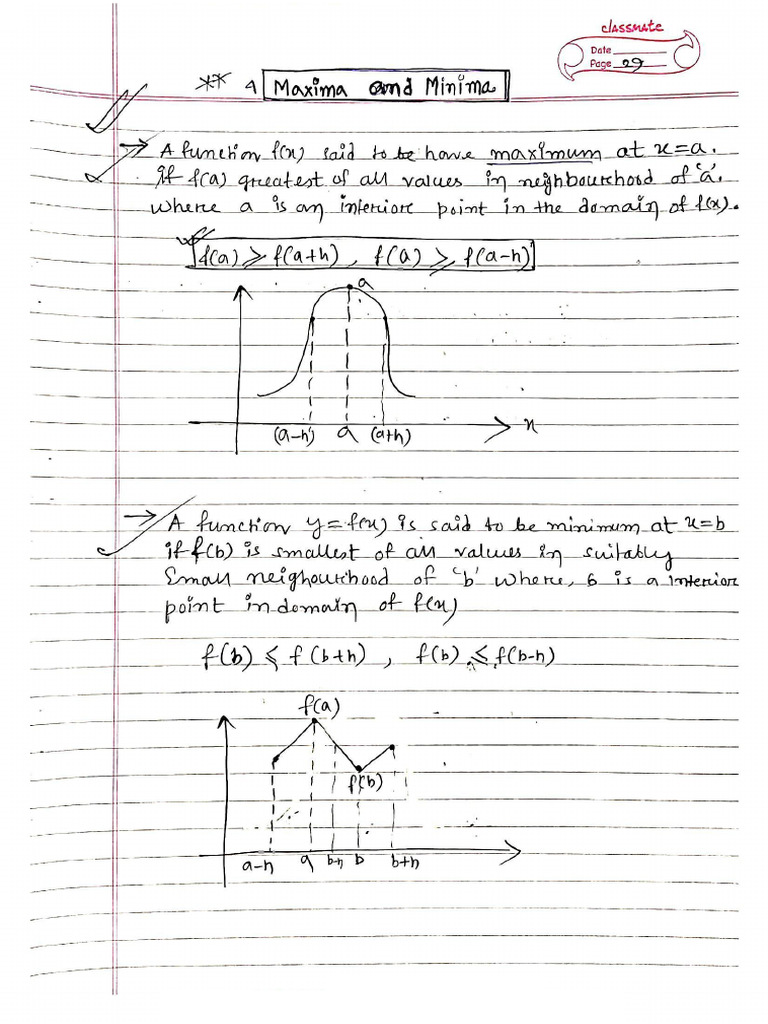 classmate
Date
Page 29
** 4 Maxima and Minima
→ A function f(x) said to be have maximum at x=a.
if f(a) greatest of all values in neighbourhood of 'a'.
where a is an interior point in the domain of f(x).
f(a) ⩾ f(a+h) , f(a) ⩾ f(a-h)
a
(a-h) a (a+h) x
→ A function y=f(x) is said to be minimum at x=b
if f(b) is smallest of all values in suitably
Small neighourhood of 'b' where, b is a interior
point in domain of f(x)
f(b) ⩽ f(b+h) , f(b) ⩽ f(b-h)
f(a)
f(b)
a-h a b-h b b+h